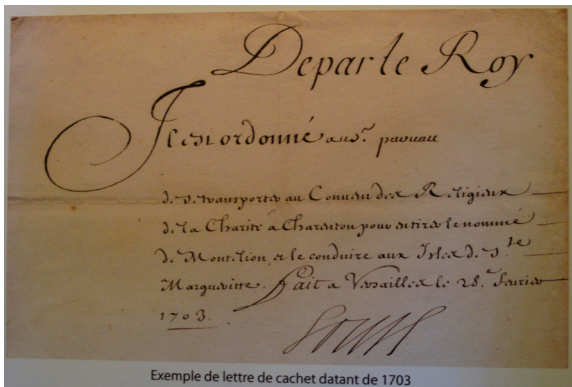 De par le Roy
Il est ordonné au Sr. pauuau
de se transporter au Convent des Religieux
de la Charité à Charenton pour en tirer le nommé
de Montlion, et le conduire aux Isles de Ste
Margueritte. fait a Versailles le 28e feurier
1703.
Louis
Exemple de lettre de cachet datant de 1703